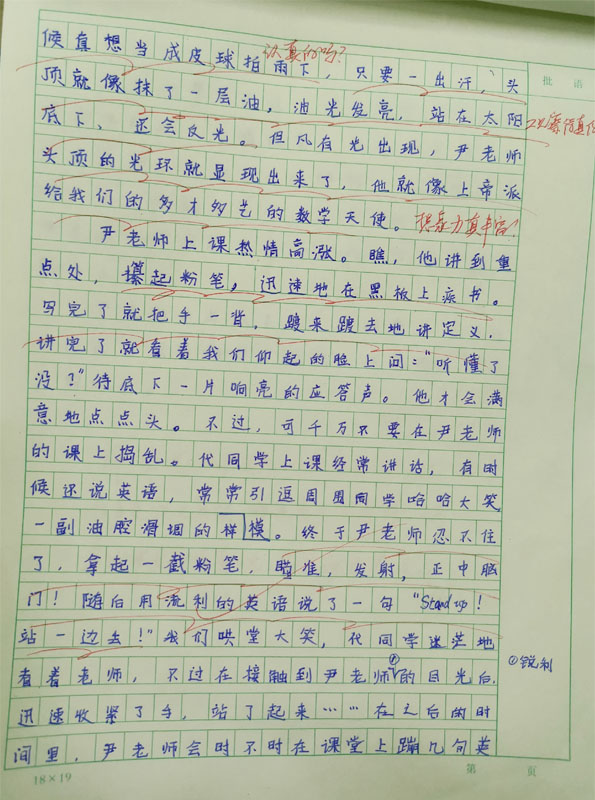 认真的吗?
候真想当成皮球拍两下,只要一出汗,头
批 语
顶就像抹了一层油,油光发亮,站在太阳
底下、还会反光。但凡有光出现,尹老师
头顶的光环就显现出来了,他就像上帝派
给我们的多才多艺的数学天使。想象力真丰富!
尹老师上课热情高涨。瞧,他讲到重
点处,攥起粉笔,迅速地在黑板上疾书。
写完了就把手一背,踱来踱去地讲定义.
讲完了就看着我们仰起的脸上问:“听懂了
没?”待底下一片响亮的应答声。他才会满
意地点点头。不过,可千万不要在尹老师
的课上捣乱。代同学上课经常讲话,有时
候还说英语,常常引逗周围同学哈哈大笑
一副油腔滑调的样模。终于尹老师忍不住
了,拿起一截粉笔,瞄准,发射,正中脑
门!随后用流利的英语说了一句“Stand up!
站一边去!”我们哄堂大笑,代同学迷茫地
看着老师,不过在接触到尹老师①的目光后.
①锐利
迅速收紧了手,站了起来……在之后的时
间里,尹老师会时不时在课堂上蹦几句英
18×19
第 页